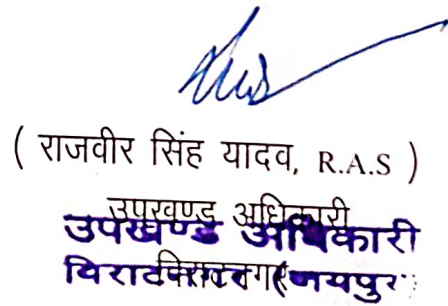 ( राजवीर सिंह यादव, R.A.S )
उपखण्ड अधिकारी
उपखण्ड अधिकारी
विराटनगर (जयपुर)